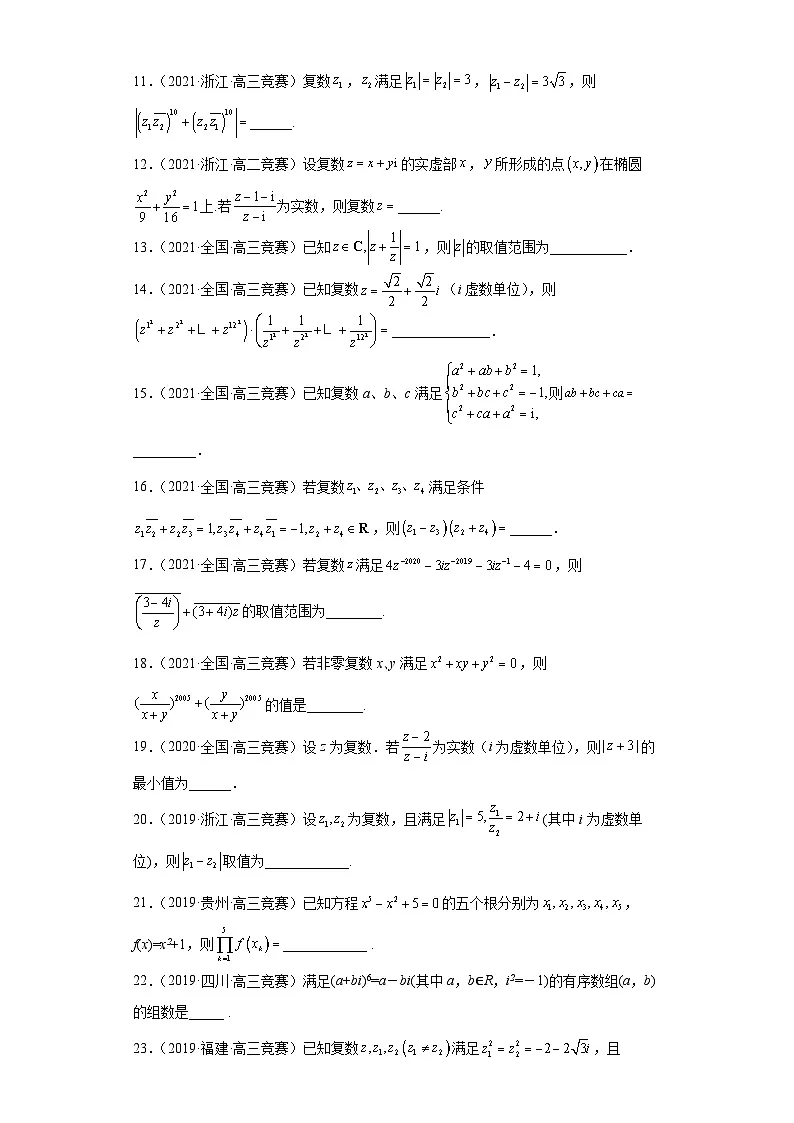 11.(2021·浙江·高三竞赛)复数z₁,z₂满足|z₁|=|z₂|=3,|z₁−z₂|=3√3,则
|(z₁z̅₂)¹⁰+(z₂z̅₁)¹⁰|=______.
12.(2021·浙江·高二竞赛)设复数z=x+yi的实虚部x,y所形成的点(x,y)在椭圆
x²/9+y²/16=1上.若(z−1−i)/(z−i)为实数,则复数z=______.
13.(2021·全国·高三竞赛)已知z∈C,|z+1/z|=1,则|z|的取值范围为___________.
14.(2021·全国·高三竞赛)已知复数z=√2/2+√2/2i(i虚数单位),则
(z^{1²}+z^{2²}+∟+z^{12²})·(1/z^{1²}+1/z^{2²}+∟+1/z^{12²})=______________.
15.(2021·全国·高三竞赛)已知复数a、b、c满足{a²+ab+b²=1,b²+bc+c²=−1,c²+ca+a²=i,则ab+bc+ca=
_________.
16.(2021·全国·高三竞赛)若复数z₁、z₂、z₃、z₄满足条件
z₁z̅₂+z₂z̅₃=1,z₃z̅₄+z₄z̅₁=−1,z₂+z₄∈R,则(z₁−z₃)(z₂+z₄)=______.
17.(2021·全国·高三竞赛)若复数z满足4z⁻²⁰²⁰−3iz⁻²⁰¹⁹−3iz⁻¹−4=0,则
\overline{((3−4i)/z)}+\overline{(3+4i)z}的取值范围为________.
18.(2021·全国·高三竞赛)若非零复数x,y满足x²+xy+y²=0,则
(x/(x+y))²⁰⁰⁵+(y/(x+y))²⁰⁰⁵的值是________.
19.(2020·全国·高三竞赛)设z为复数.若(z−2)/(z−i)为实数(i为虚数单位),则|z+3|的
最小值为______.
20.(2019·浙江·高三竞赛)设z₁,z₂为复数,且满足|z₁|=5,z₁/z₂=2+i(其中i为虚数单
位),则|z₁−z₂|取值为____________.
21.(2019·贵州·高三竞赛)已知方程x⁵−x²+5=0的五个根分别为x₁,x₂,x₃,x₄,x₅,
f(x)=x²+1,则∏_{k=1}^{5}f(x_k)=____________ .
22.(2019·四川·高三竞赛)满足(a+bi)⁶=a-bi(其中a,b∈R,i²=-1)的有序数组(a,b)
的组数是_____ .
23.(2019·福建·高三竞赛)已知复数z,z₁,z₂(z₁≠z₂)满足z₁²=z₂²=−2−2√3i,且